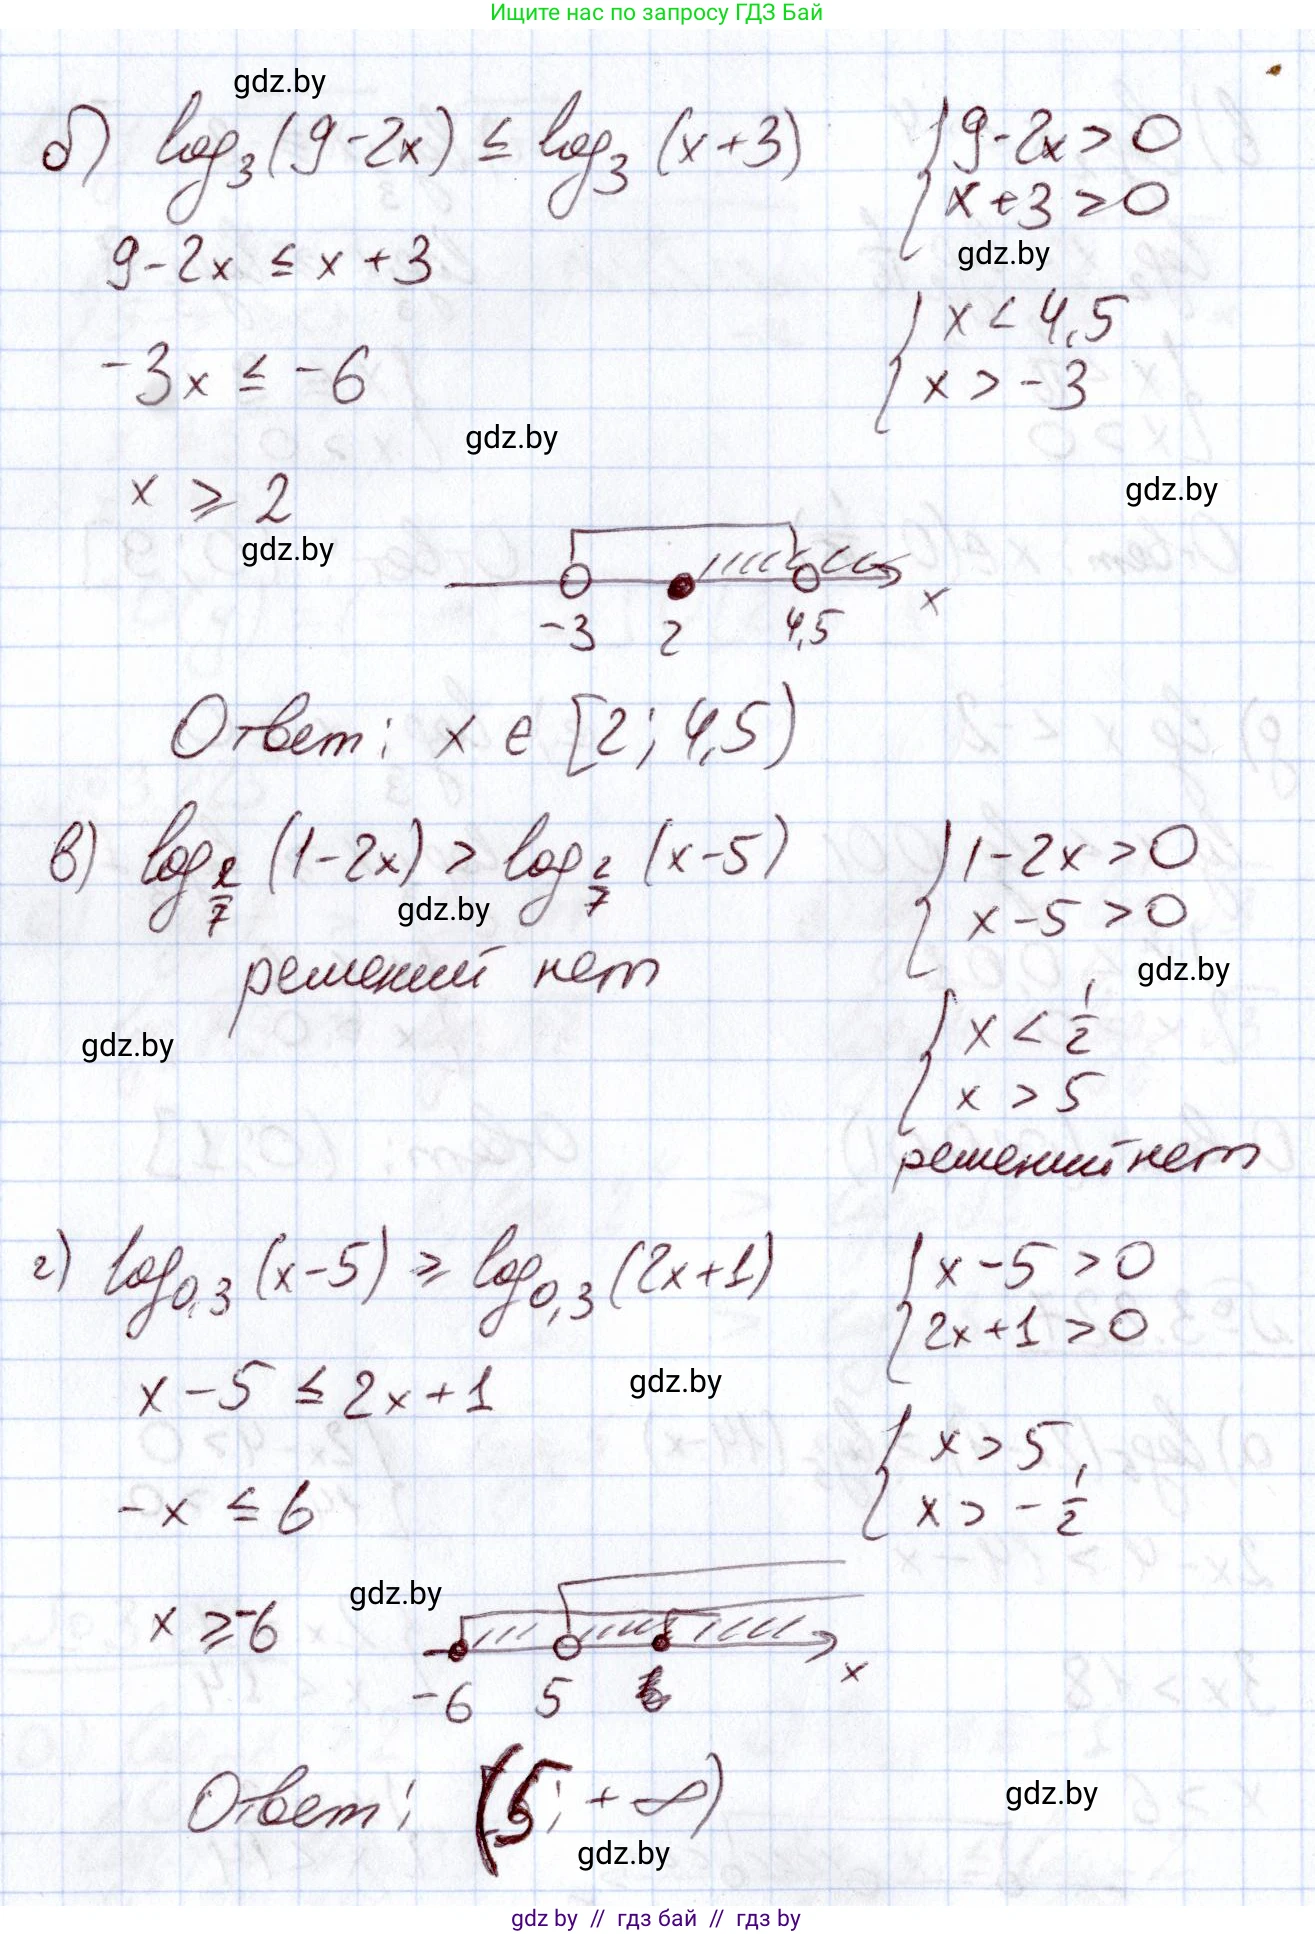 Ищите нас по запросу ГДЗ Бай
gdz.by
б) log₃(9-2x) ≤ log₃(x+3)
{ 9-2x > 0
x+3 > 0
gdz.by
9-2x ≤ x+3
{ x < 4,5
x > -3
-3x ≤ -6
gdz.by
gdz.by
x ⩾ 2
gdz.by
-3 2 4,5 x
Ответ: x ∈ [2; 4,5)
в) log_{2/7} (1-2x) > log_{2/7} (x-5)
{ 1-2x > 0
x-5 > 0
gdz.by
gdz.by
решений нет
gdz.by
{ x < 1/2
x > 5
решений нет
г) log_{0,3}(x-5) ⩾ log_{0,3}(2x+1)
{ x-5 > 0
2x+1 > 0
x-5 ≤ 2x+1
gdz.by
{ x > 5
x > -1/2
-x ≤ 6
gdz.by
x ⩾ -6
-6 5 x
Ответ: (5; +∞)
gdz.by
gdz.by
gdz by // гдз бай // гдз by